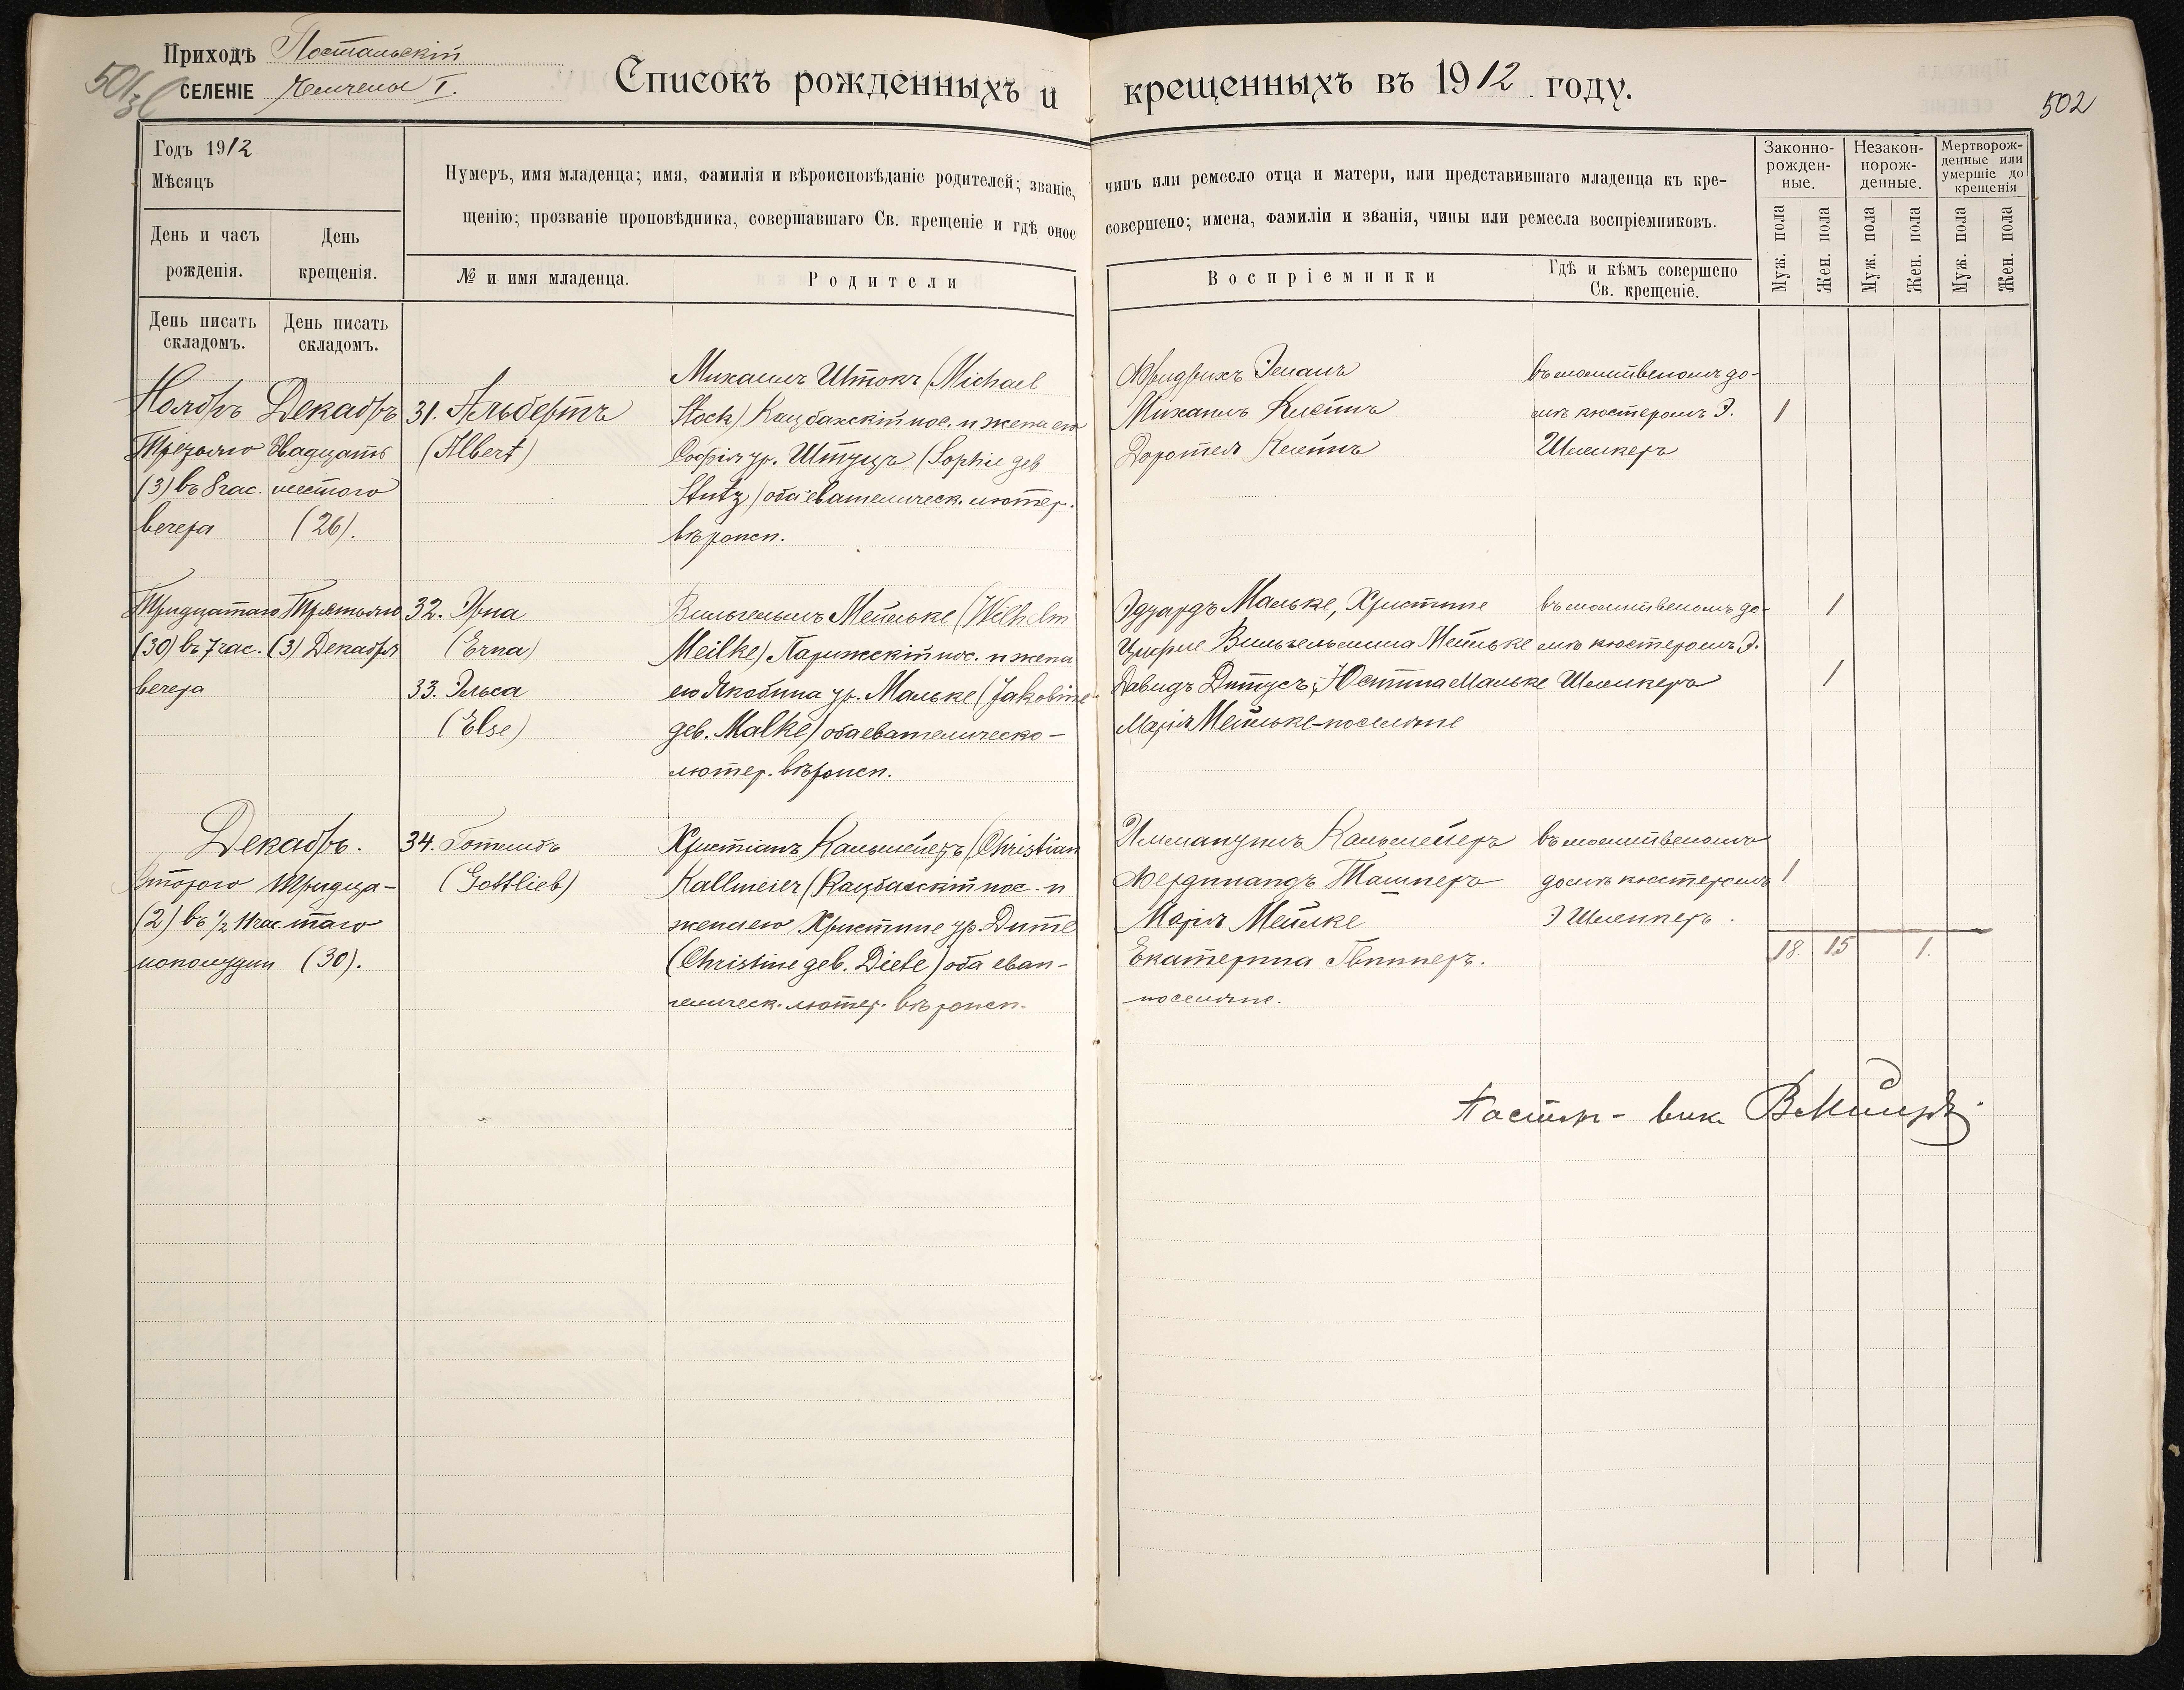 Приходъ Постальскій
СЕЛЕНІЕ Чемчелы I.
Списокъ рожденныхъ и крещенныхъ въ 1912 году.
502
Годъ 1912
Мѣсяцъ
День и часъ рожденія.
День крещенія.
Нумеръ, имя младенца; имя, фамилія и вѣроисповѣданіе родителей; званіе, чинъ или ремесло отца и матери, или представившаго младенца къ кре-
щенію; прозваніе проповѣдника, совершавшаго Св. крещеніе и гдѣ оное совершено; имена, фамиліи и званія, чины или ремесла воспріемниковъ.
№ и имя младенца.
Родители
Воспріемники
Гдѣ и кѣмъ совершено
Св. крещеніе.
Законно-
рожден-
ные.
Незакон-
норож-
денные.
Мертворож-
денные или
умершіе до
крещенія
Муж. пола
Жен. пола
Муж. пола
Жен. пола
Муж. пола
Жен. пола
День писать
складомъ.
День писать
складомъ.
Ноябрь
Третьяго
(3) въ 8 час.
вечера
Декабрь
Двадцать
шестого
(26).
31. Альбертъ
(Albert)
Михаилъ Штокъ (Michael
Stock) Кацбахскій пос. и жена его
Софія ур. Штуцъ (Sophie geb
Stutz) оба евангелическ. лютер.
вѣроисп.
Фридрихъ
Михаилъ
Доротея
въ молитвеномъ до-
мѣ кюстеромъ Э.
Шленкеръ
1
Тридцатаго
(30) въ 7 час.
вечера
Третьяго
(3) Декабря
32. Эрна
(Erna)
33. Эльса
(Else)
Вильгельмъ Мейльке (Wilhelm
Meilke) Парижскій пос. и жена
его Якобина ур. Мальке (Jakobine
геб. Malke) оба евангелическо-
лютер. вѣроисп.
Эдуардъ Мальке, Христине
Вильгельмина Мейльке
Давидъ Дитусъ, Юстина Мальке
Марія Мейльке - поселяне
въ молитвеномъ до-
мѣ кюстеромъ Э.
Шленкеръ
1
1
Декабрь.
Второго
(2) въ 1/2 11 час.
пополудни
Тридца-
таго
(30).
34. Готлибъ
(Gottlieb)
Христіанъ Кальмейеръ (Christian
Kallmeier (Кацбахскій пос. и
жена его Христине ур. Дите
(Christine geb. Diete) оба еван-
гелическ. лютер. вѣроисп.
Иммануилъ Кальмейеръ
Фердинандъ Ташнеръ
Марія Мейлке
Екатерина
поселяне.
въ молитвеномъ
домѣ кюстеромъ
Э Шленкеръ.
1
18. 15 1.
Пасторъ - вик.